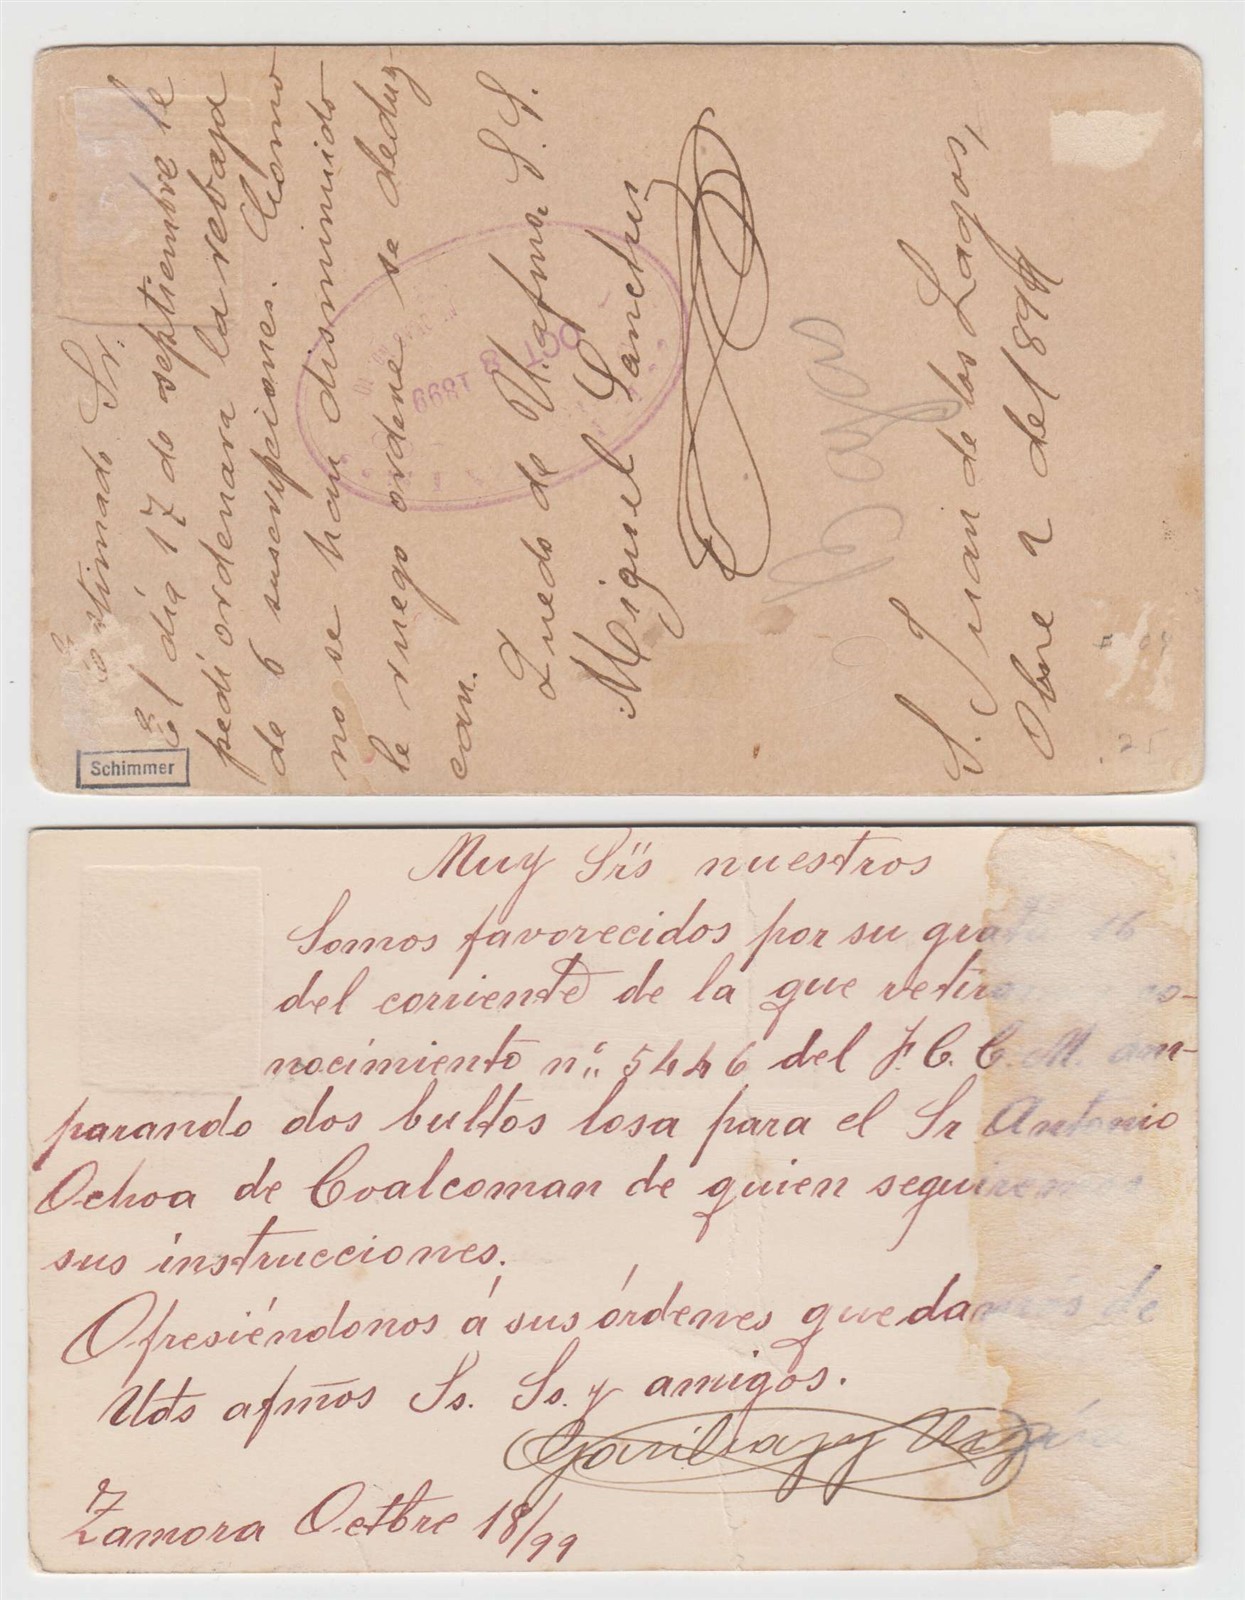 Estimado Sr.
El día 17 de septiembre le
pedí ordenara la rebaja
de 6 suscripciones. Como
no se han disminuido
le ruego ordene se deduz-
can.
Quedo de U. afmo. S. S.
Miguel Sanchez
OCT 3 1899
Bajas
S. Juan de los Lagos,
Obre 2 de 1899
.25
Schimmer
Muy Srs nuestros
Somos favorecidos por su grata 16
del corriente de la que retira co-
nocimiento nº 5446 del F. C. C. M. am-
parando dos bultos losa para el Sr Antonio
Ochoa de Coalcoman de quien seguiremos
sus instrucciones.
Ofresiéndonos á sus órdenes quedamos de
Uds afmos Ss. Ss. y amigos.
Zamora Octbre 18/99